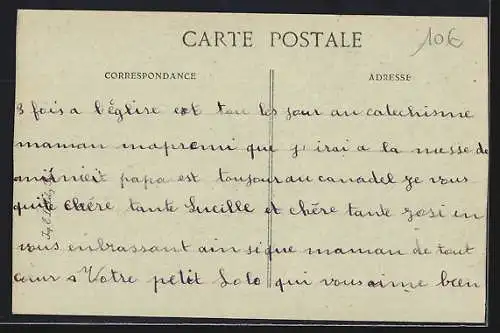 CARTE POSTALE
10€
CORRESPONDANCE
ADRESSE
3 fois a l'église est tou les jour au catechisme
maman mapromi que j'irai a la messe de
minuit papa est toujour au canadel je vous
quite chère tante Lucille et chère tante en
vous enbrassant ainsi que maman de tout
cœur Votre petit Lolo qui vous aime bien